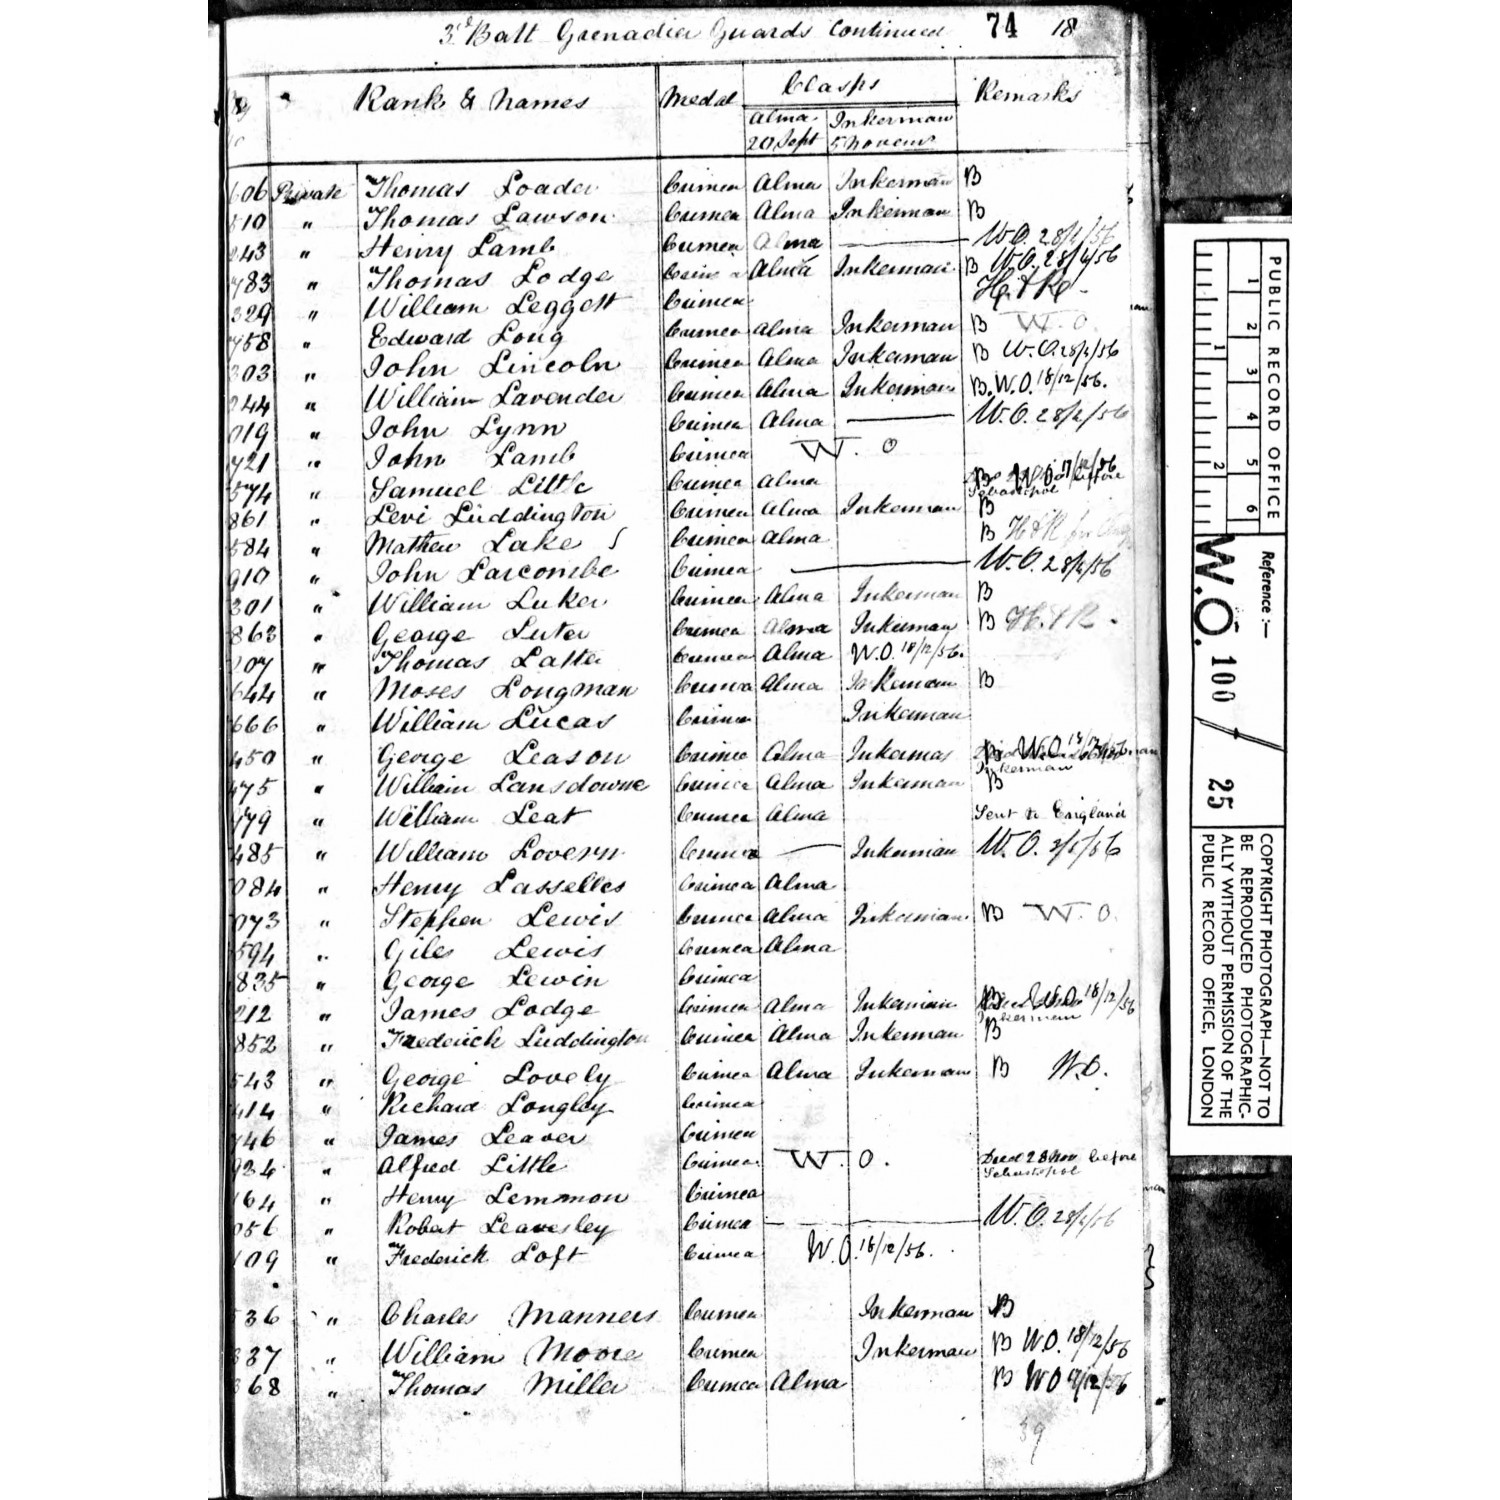 3rd Batt Grenadier Guards Continued 74 18
Rank & Names Medal Clasps Remarks
Alma 20 Sept Inkerman 5 Novemr
606 Private Thomas Loader Crimea Alma Inkerman B
510 " Thomas Lawson Crimea Alma Inkerman B
243 " Henry Lamb Crimea Alma — W.O. 28/4/56
783 " Thomas Lodge Crimea Alma Inkerman B W.O. 28/4/56
329 " William Leggott Crimea H&R
758 " Edward Long Crimea Alma Inkerman B W.O.
303 " John Lincoln Crimea Alma Inkerman B W.O. 28/4/56
244 " William Lavender Crimea Alma Inkerman B. W.O. 18/12/56.
019 " John Lynn Crimea Alma — W.O. 28/4/56
721 " John Lamb Crimea W. O
574 " Samuel Little Crimea Alma B W.O 17/12/56 before Sebastopol
861 " Levi Luddington Crimea Alma Inkerman B
584 " Mathew Lake Crimea Alma B H&R for
910 " John Larcombe Crimea — W.O. 28/4/56
301 " William Luker Crimea Alma Inkerman B
863 " George Luter Crimea Alma Inkerman B H&R
207 " Thomas Latter Crimea Alma W.O. 18/12/56.
644 " Moses Longman Crimea Alma Inkerman B
666 " William Lucas Crimea Inkerman
450 " George Leason Crimea Alma Inkerman B W.O. 18/12/56 Inkerman
475 " William Lansdowne Crimea Alma Inkerman B
479 " William Leat Crimea Alma Sent to England
485 " William Lovern Crimea — Inkerman W.O. 2/5/56
084 " Henry Lasselles Crimea Alma
073 " Stephen Lewis Crimea Alma Inkerman B W. O.
594 " Giles Lewis Crimea Alma
835 " George Lewin Crimea
212 " James Lodge Crimea Alma Inkerman B W.O. 18/12/56 Inkerman
852 " Frederick Luddington Crimea Alma Inkerman B
543 " George Lovely Crimea Alma Inkerman B W.O.
414 " Richard Longley Crimea
746 " James Leaver Crimea
924 " Alfred Little Crimea W. O. Died 28 Nov before Sebastopol
164 " Henry Lemmon Crimea
056 " Robert Leavesley Crimea — W.O. 28/4/56
109 " Frederick Loft Crimea W.O. 18/12/56.
536 " Charles Manners Crimea Inkerman B
337 " William Moore Crimea Inkerman B W.O. 18/12/56
368 " Thomas Miller Crimea Alma B W O 17/12/56
59
PUBLIC RECORD OFFICE
1 2 3 4 5 6
1 2
Reference :—
W.O. 100 / 25
COPYRIGHT PHOTOGRAPH—NOT TO
BE REPRODUCED PHOTOGRAPHIC-
ALLY WITHOUT PERMISSION OF THE
PUBLIC RECORD OFFICE, LONDON